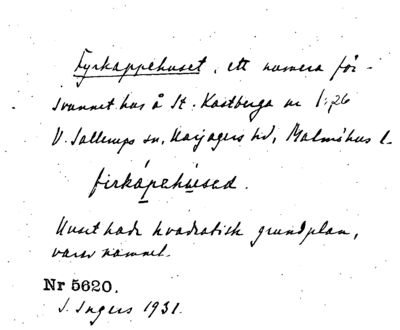 Fyrkappehuset, ett numera för-
svunnet hus å St. Kastberga nr 1:26
V. Sallerups sn, Harjagers hd, Malmöhus l.
firkápehùsed.
Huset hade kvadratisk grundplan,
varav namnet.
Nr 5620.
I. Ingers 1931.